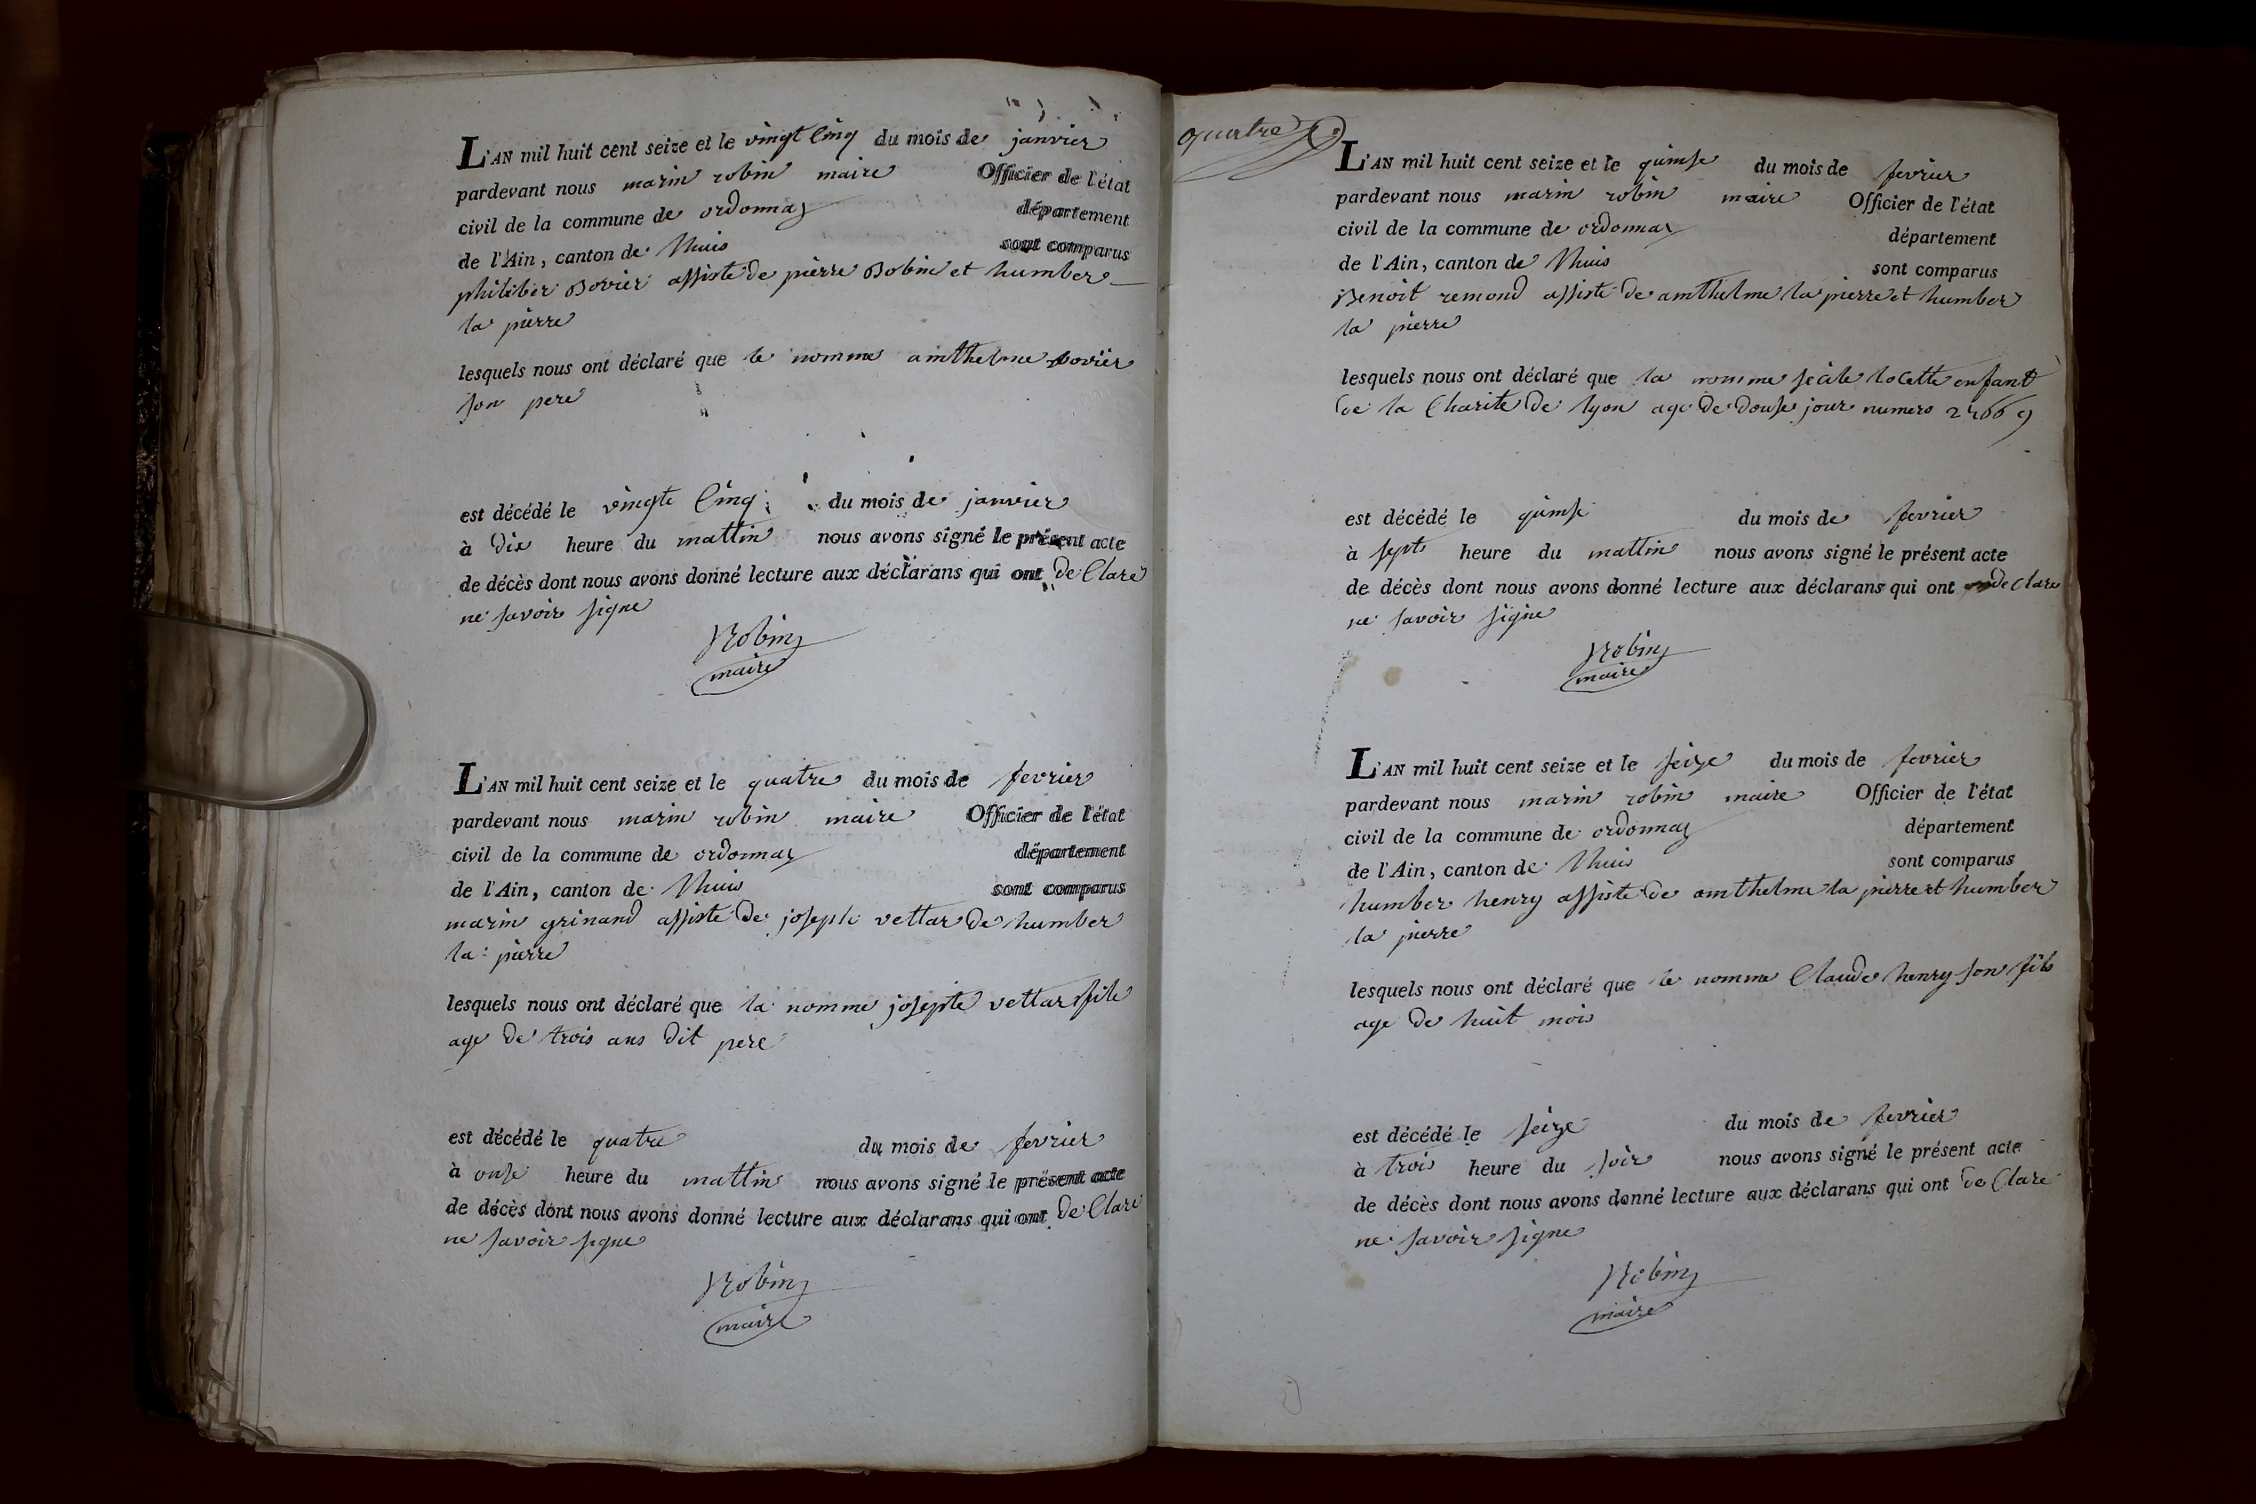 L'AN mil huit cent seize et le vingt Cinq du mois de janvier
pardevant nous marin robin maire Officier de l'état
civil de la commune de ordonnaz département
de l'Ain, canton de Lhuis sont comparus
philiber Bovier assisté de pierre Bobin et humber
la pierre
lesquels nous ont déclaré que le nomme amthelme bovier
son pere
est décédé le vingte Cinq du mois de janvier
à dix heure du mattin nous avons signé le présent acte
de décès dont nous avons donné lecture aux déclarans qui ont de Clare
ne savoir signe
Robin
maire
L'AN mil huit cent seize et le quatre du mois de fevrier
pardevant nous marin robin maire Officier de l'état
civil de la commune de ordonnaz département
de l'Ain, canton de Lhuis sont comparus
marin grinand assisté de joseph vettar de humber
la pierre
lesquels nous ont déclaré que la nomme josepte vettar file
age de trois ans dit pere
est décédé le quatre du mois de fevrier
à onse heure du mattin nous avons signé le présent acte
de décès dont nous avons donné lecture aux déclarans qui ont de Clare
ne savoir signe
Robin
maire
quatre
L'AN mil huit cent seize et le quinse du mois de fevrier
pardevant nous marin robin maire Officier de l'état
civil de la commune de ordonnaz département
de l'Ain, canton de Lhuis sont comparus
Benoit remond assisté de amthelme la pierre et humber
la pierre
lesquels nous ont déclaré que la nomme locette enfant
de la Charite de lyon age de douse jour numero
est décédé le quinse du mois de fevrier
à sept heure du mattin nous avons signé le présent acte
de décès dont nous avons donné lecture aux déclarans qui ont de Clare
ne savoir signe
Robin
maire
L'AN mil huit cent seize et le seize du mois de fevrier
pardevant nous marin robin maire Officier de l'état
civil de la commune de ordonnaz département
de l'Ain, canton de Lhuis sont comparus
humber henry assisté de amthelme la pierre et humber
la pierre
lesquels nous ont déclaré que le nomme Claude henry son fils
age de huit mois
est décédé le seize du mois de fevrier
à trois heure du soir nous avons signé le présent acte
de décès dont nous avons donné lecture aux déclarans qui ont de Clare
ne savoir signe
Robin
maire